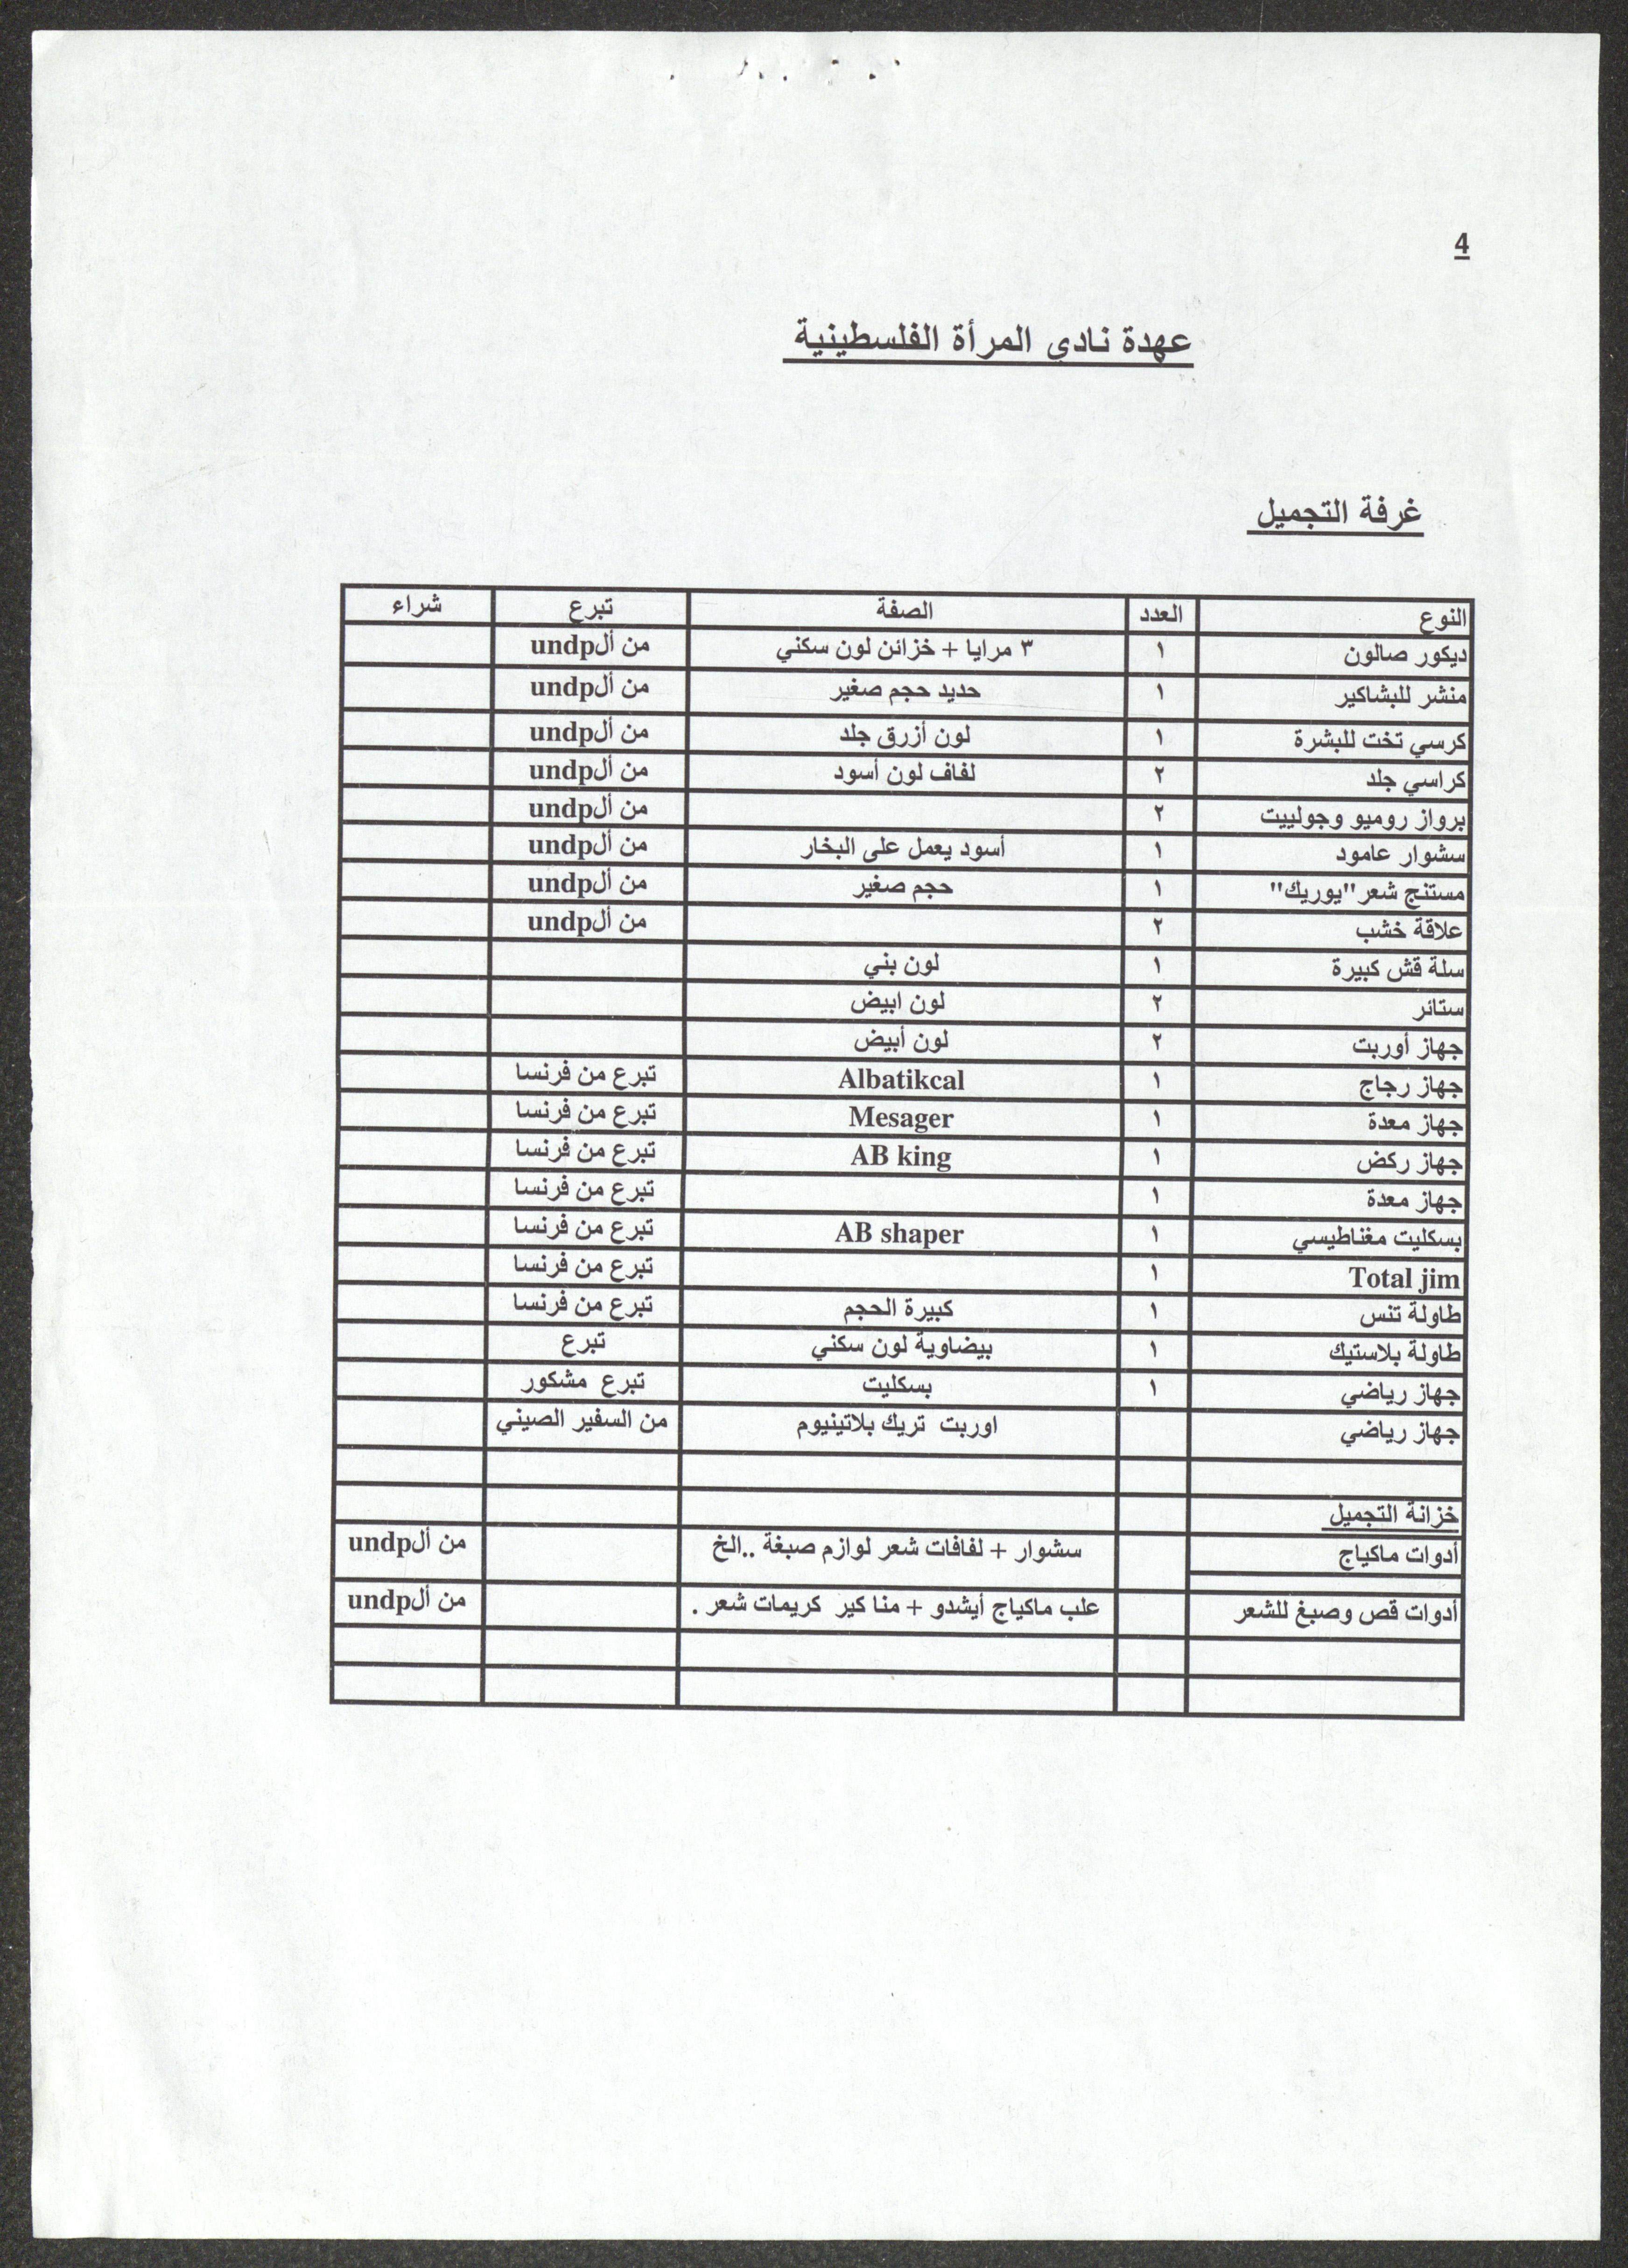 4
عهدة نادي المرأة الفلسطينية
غرفة التجميل
النوع العدد الصفة تبرع شراء
ديكور صالون ١ ٣ مرايا + خزائن لون سكني من ألundp
منشر للبشاكير ١ حديد حجم صغير من ألundp
كرسي تخت للبشرة ١ لون أزرق جلد من ألundp
كراسي جلد ٢ لفاف لون أسود من ألundp
برواز روميو وجولييت ٢ من ألundp
سشوار عامود ١ أسود يعمل على البخار من ألundp
مستنج شعر "يوريك" ١ حجم صغير من ألundp
علاقة خشب ٢ من ألundp
سلة قش كبيرة ١ لون بني
ستائر ٢ لون ابيض
جهاز أوربت ٢ لون أبيض
جهاز رجاج ١ Albatikcal تبرع من فرنسا
جهاز معدة ١ Mesager تبرع من فرنسا
جهاز ركض ١ AB king تبرع من فرنسا
جهاز معدة ١ تبرع من فرنسا
بسكليت مغناطيسي ١ AB shaper تبرع من فرنسا
Total jim ١ تبرع من فرنسا
طاولة تنس ١ كبيرة الحجم تبرع من فرنسا
طاولة بلاستيك ١ بيضاوية لون سكني تبرع
جهاز رياضي ١ بسكليت تبرع مشكور
جهاز رياضي اوربت تريك بلاتينيوم من السفير الصيني
خزانة التجميل
أدوات ماكياج سشوار + لفافات شعر لوازم صبغة ..الخ من ألundp
أدوات قص وصبغ للشعر علب ماكياج أيشدو + منا كير كريمات شعر . من ألundp